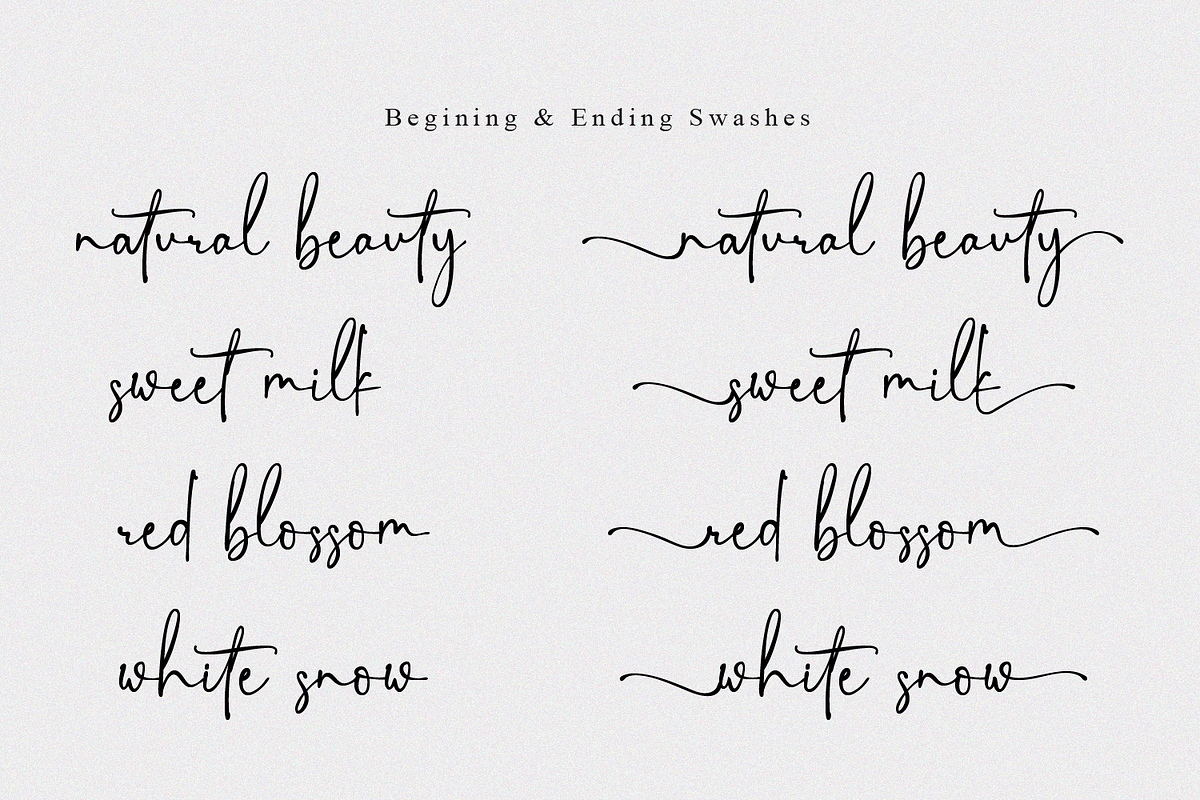 Begining & Ending Swashes
natural beauty natural beauty
sweet milk sweet milk
red blossom red blossom
white snow white snow